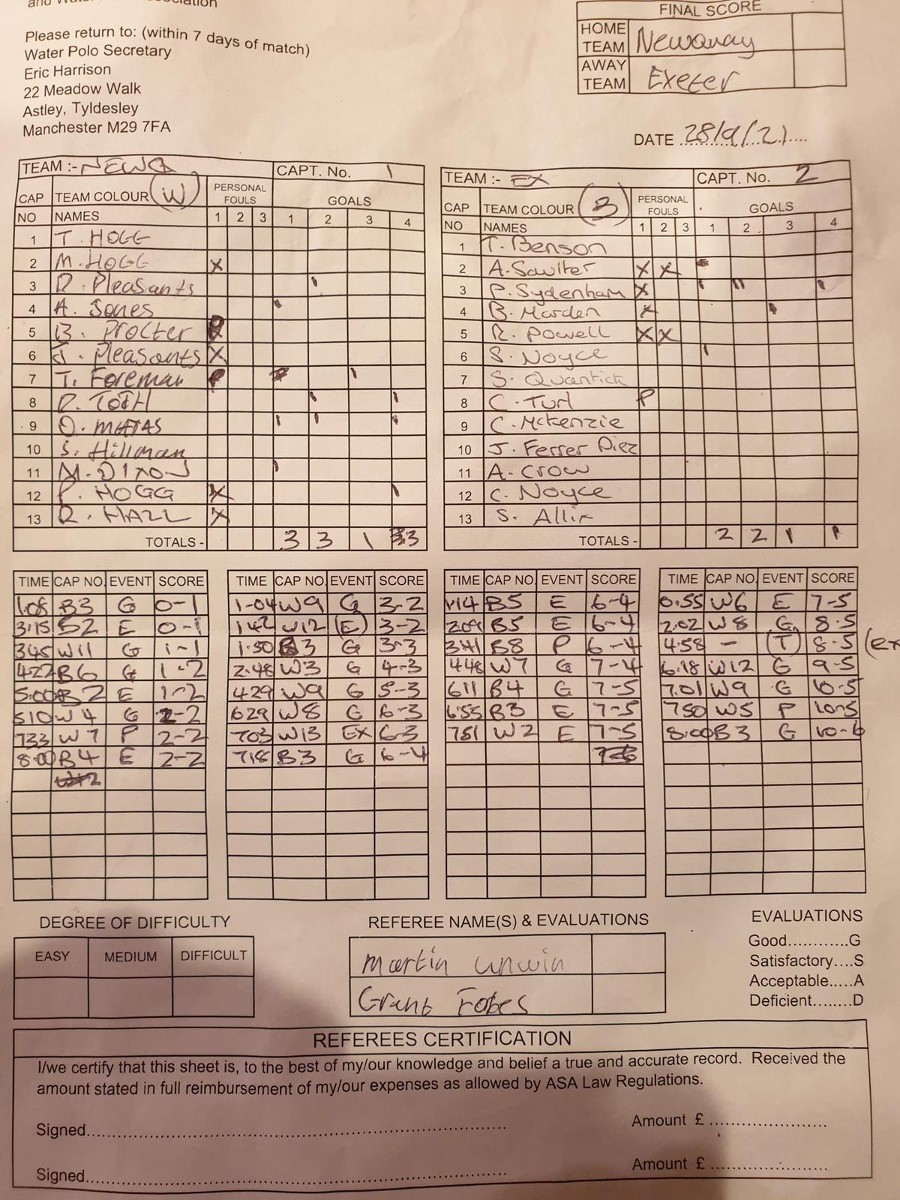 and Wat
ociation
Please return to: (within 7 days of match)
Water Polo Secretary
Eric Harrison
22 Meadow Walk
Astley, Tyldesley
Manchester M29 7FA
FINAL SCORE
HOME TEAM Newquay
AWAY TEAM Exeter
DATE 28/9/21
TEAM :- NEWQ CAPT. No. 1
CAP NO TEAM COLOUR (W) NAMES PERSONAL FOULS 1 2 3 GOALS 1 2 3 4
1 T. HOGG
2 M. HOGG X
3 D. Pleasants
4 A. Jones
5 B. Procter
6 J. Pleasants X
7 T. Foreman P
8 D. TOTH
9 O. MATAS
10 S. Hillman
11 M. DIXON
12 P. HOGG X
13 R. HALL X
TOTALS - 3 3 1 3
TEAM :- EX CAPT. No. 2
CAP NO TEAM COLOUR (B) NAMES PERSONAL FOULS 1 2 3 GOALS 1 2 3 4
1 T. Benson
2 A. Sawlter X X
3 P. Sydenham X
4 B. Marden X
5 R. Powell X X
6 S. Noyce
7 S. Quantick
8 C. Turl P
9 C. Mckenzie
10 J. Ferrer Diez
11 A. Crow
12 C. Noyce
13 S. Allix
TOTALS - 2 2 1 1
TIME CAP NO. EVENT SCORE
1.08 B3 G 0-1
3:15 B2 E 0-1
345 W11 G 1-1
422 B6 G 1-2
5:00 B2 E 1-2
510 W4 G 2-2
733 W7 P 2-2
8:00 B4 E 2-2
TIME CAP NO. EVENT SCORE
1-04 W9 G 3-2
142 W12 (E) 3-2
1.50 B3 G 3-3
2.48 W3 G 4-3
429 W9 G 5-3
629 W8 G 6-3
703 W13 EX 6-3
718 B3 G 6-4
TIME CAP NO. EVENT SCORE
1·14 B5 E 6-4
209 B5 E 6-4
341 B8 P 6-4
448 W7 G 7-4
611 B4 G 7-5
655 B3 E 7-5
751 W2 E 7-5
TIME CAP NO. EVENT SCORE
0.55 W6 E 7-5
2.02 W8 G 8-5
4.58 - (T) 8-5 (ex
6.18 W12 G 9-5
7.01 W9 G 10-5
750 W5 P 10-5
8:00 B3 G 10-6
DEGREE OF DIFFICULTY
EASY MEDIUM DIFFICULT
REFEREE NAME(S) & EVALUATIONS
Martin Unwin
Grant Fobes
EVALUATIONS
Good............G
Satisfactory....S
Acceptable.....A
Deficient........D
REFEREES CERTIFICATION
I/we certify that this sheet is, to the best of my/our knowledge and belief a true and accurate record. Received the
amount stated in full reimbursement of my/our expenses as allowed by ASA Law Regulations.
Signed.................... Amount £ ....................
Signed.................... Amount £ ....................